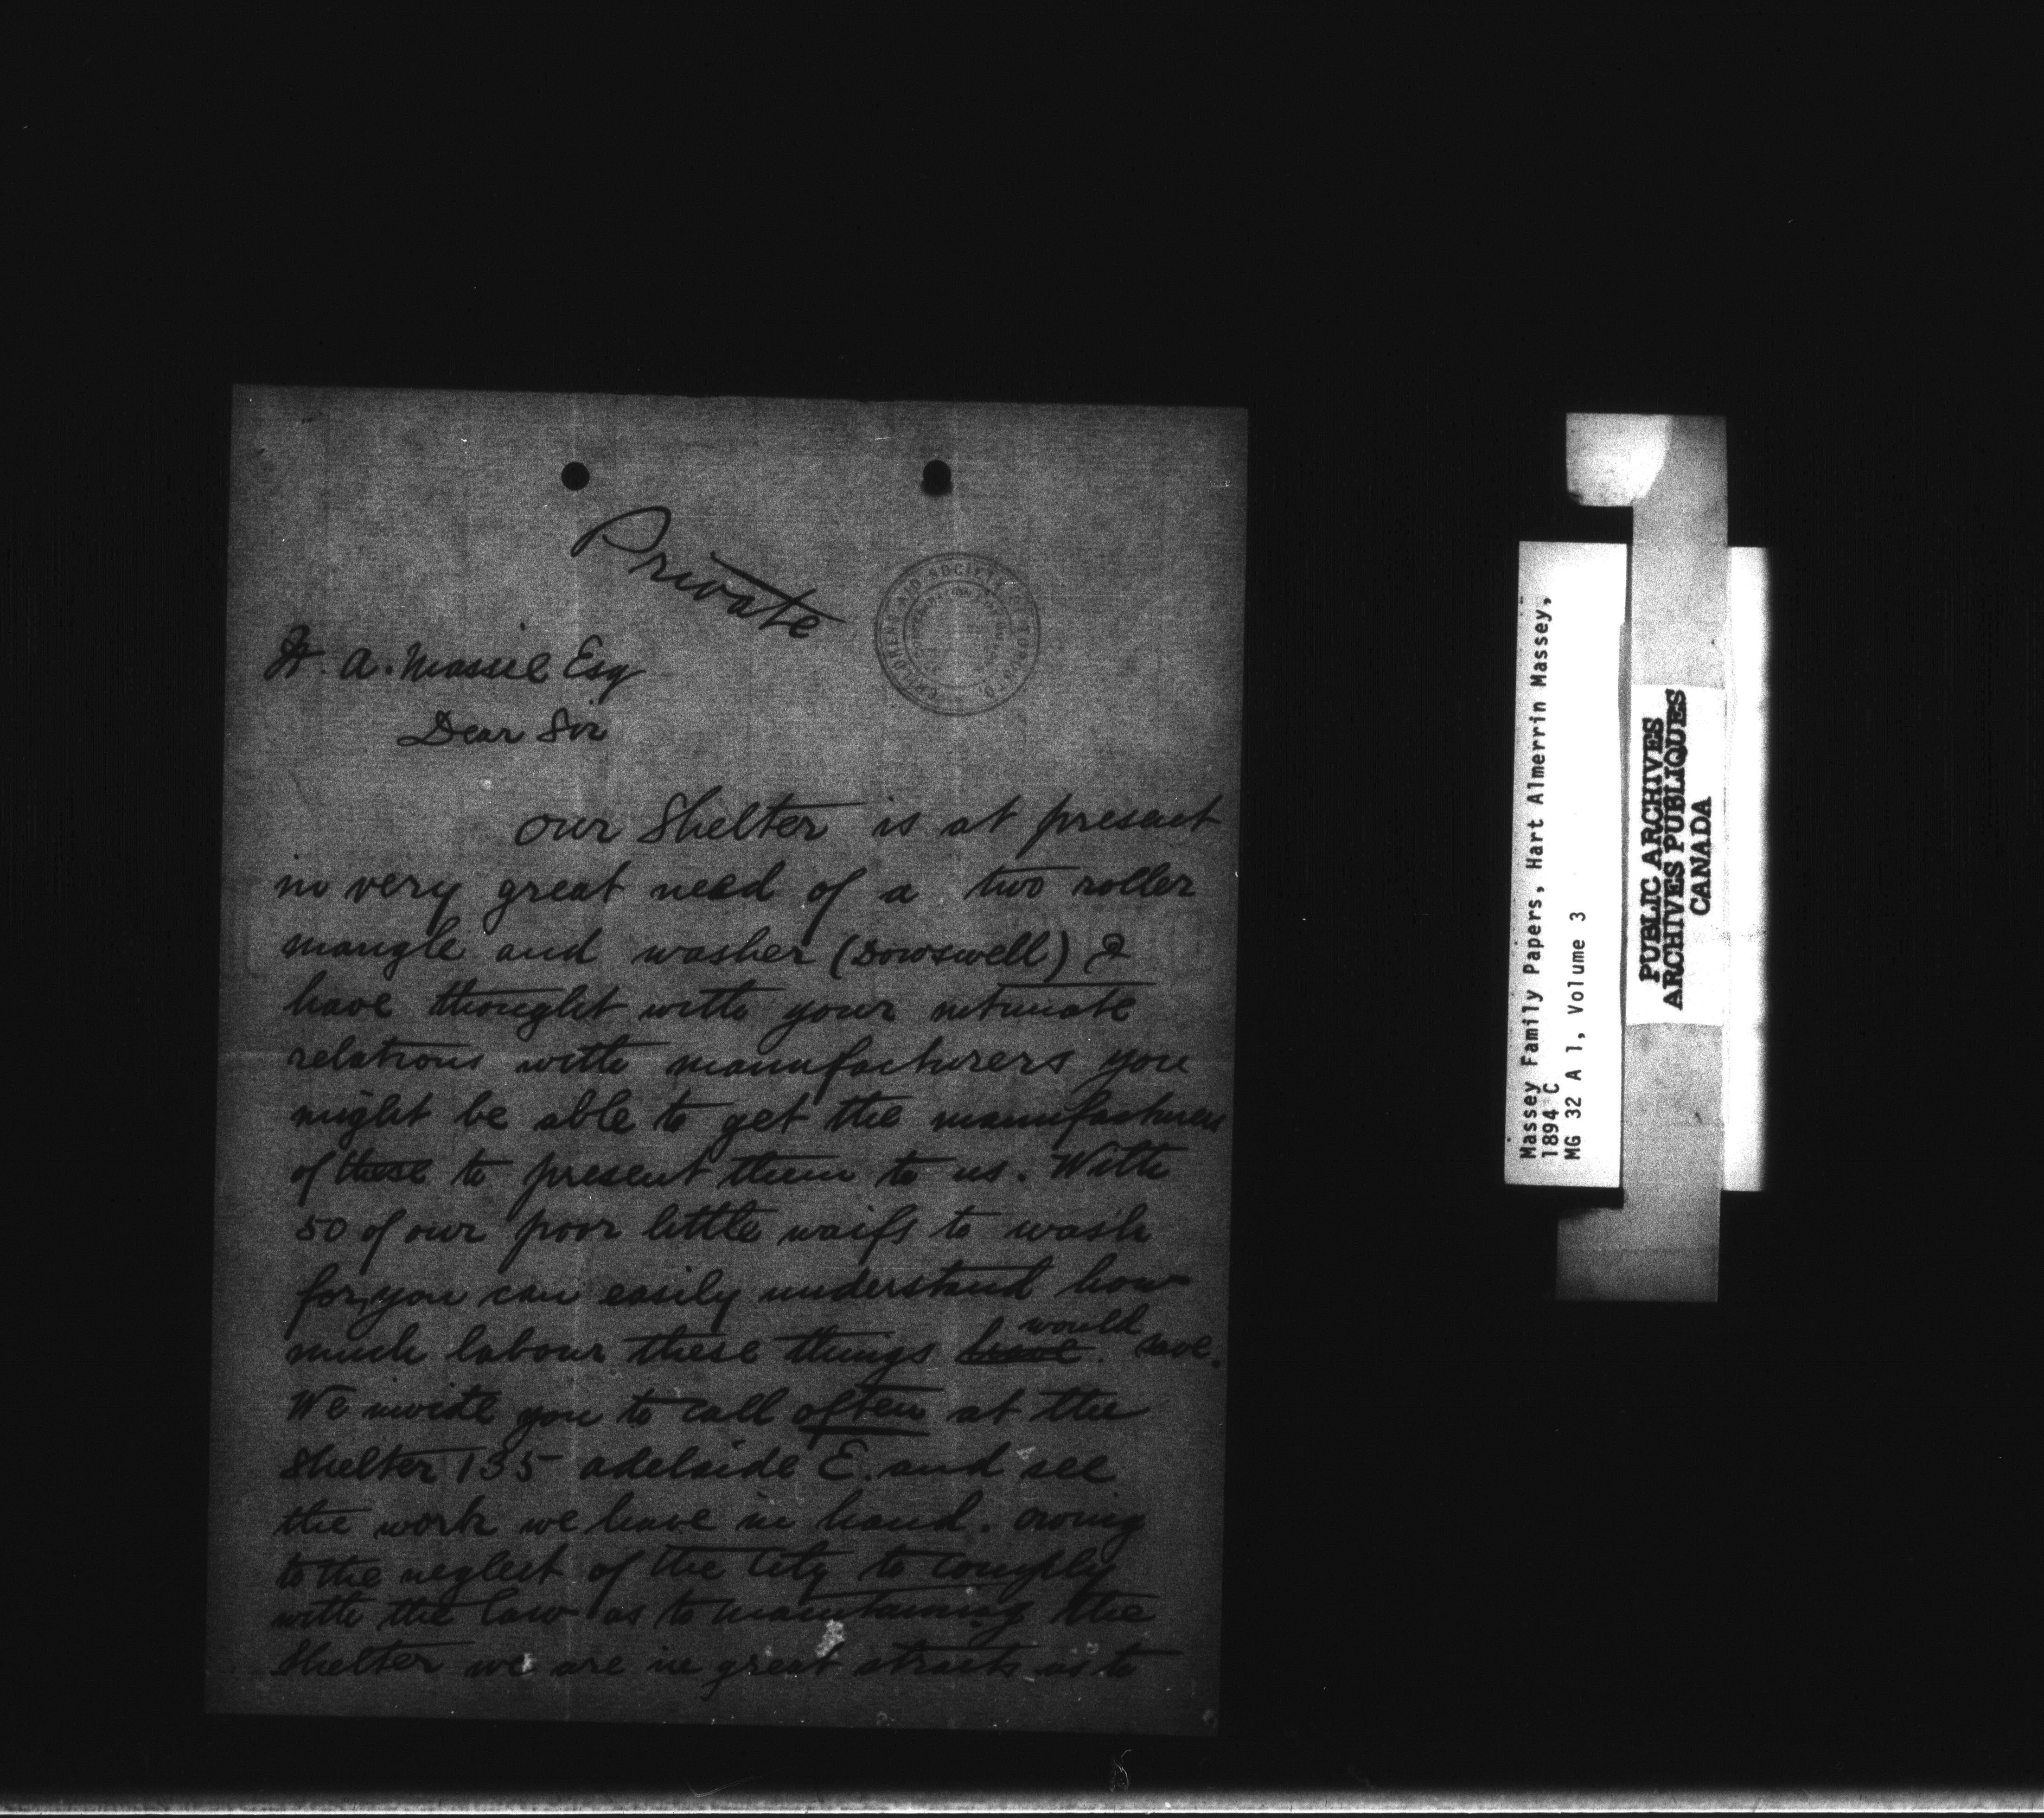 Private
CHILDREN'S AID SOCIETY OF TORONTO
H. A. Massie Esq
Dear Sir
Our Shelter is at present
in very great need of a two roller
mangle and washer (Dowswell) I
have thought with your intimate
relations with manufacturers you
might be able to get the manufacturers
of these to present them to us. With
50 of our poor little waifs to wash
for, you can easily understand how
much labour these things have would save.
We invite you to call often at the
Shelter 135 Adelaide E. and see
the work we have in hand. Owing
to the neglect of the City to comply
with the law as to maintaining the
Shelter we are in great straits as to
Massey Family Papers, Hart Almerrin Massey,
1894 C
MG 32 A 1, Volume 3
PUBLIC ARCHIVES
ARCHIVES PUBLIQUES
CANADA